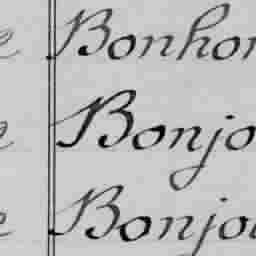 e Bonhon
e Bonjo
e Bonjou